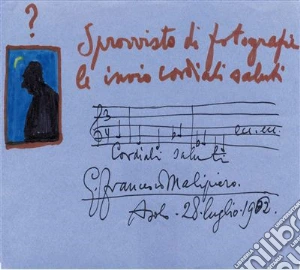 ?
Sprovvisto di fotografie
le invio cordiali saluti
ecc. ecc.
Cordiali saluti
G. Francesco Malipiero.
Asolo - 28 luglio 1962
iBS